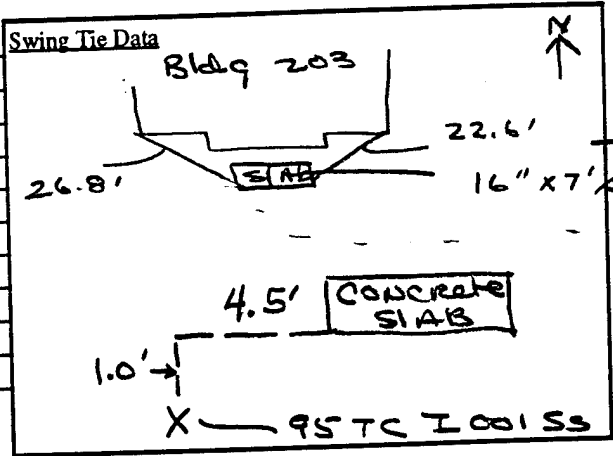 Swing Tie Data
N
Bldg 203
22.6'
26.8'
SLAB
16" x 7'
4.5'
CONCRete
SlAB
1.0'
X
95 TC I 001 SS